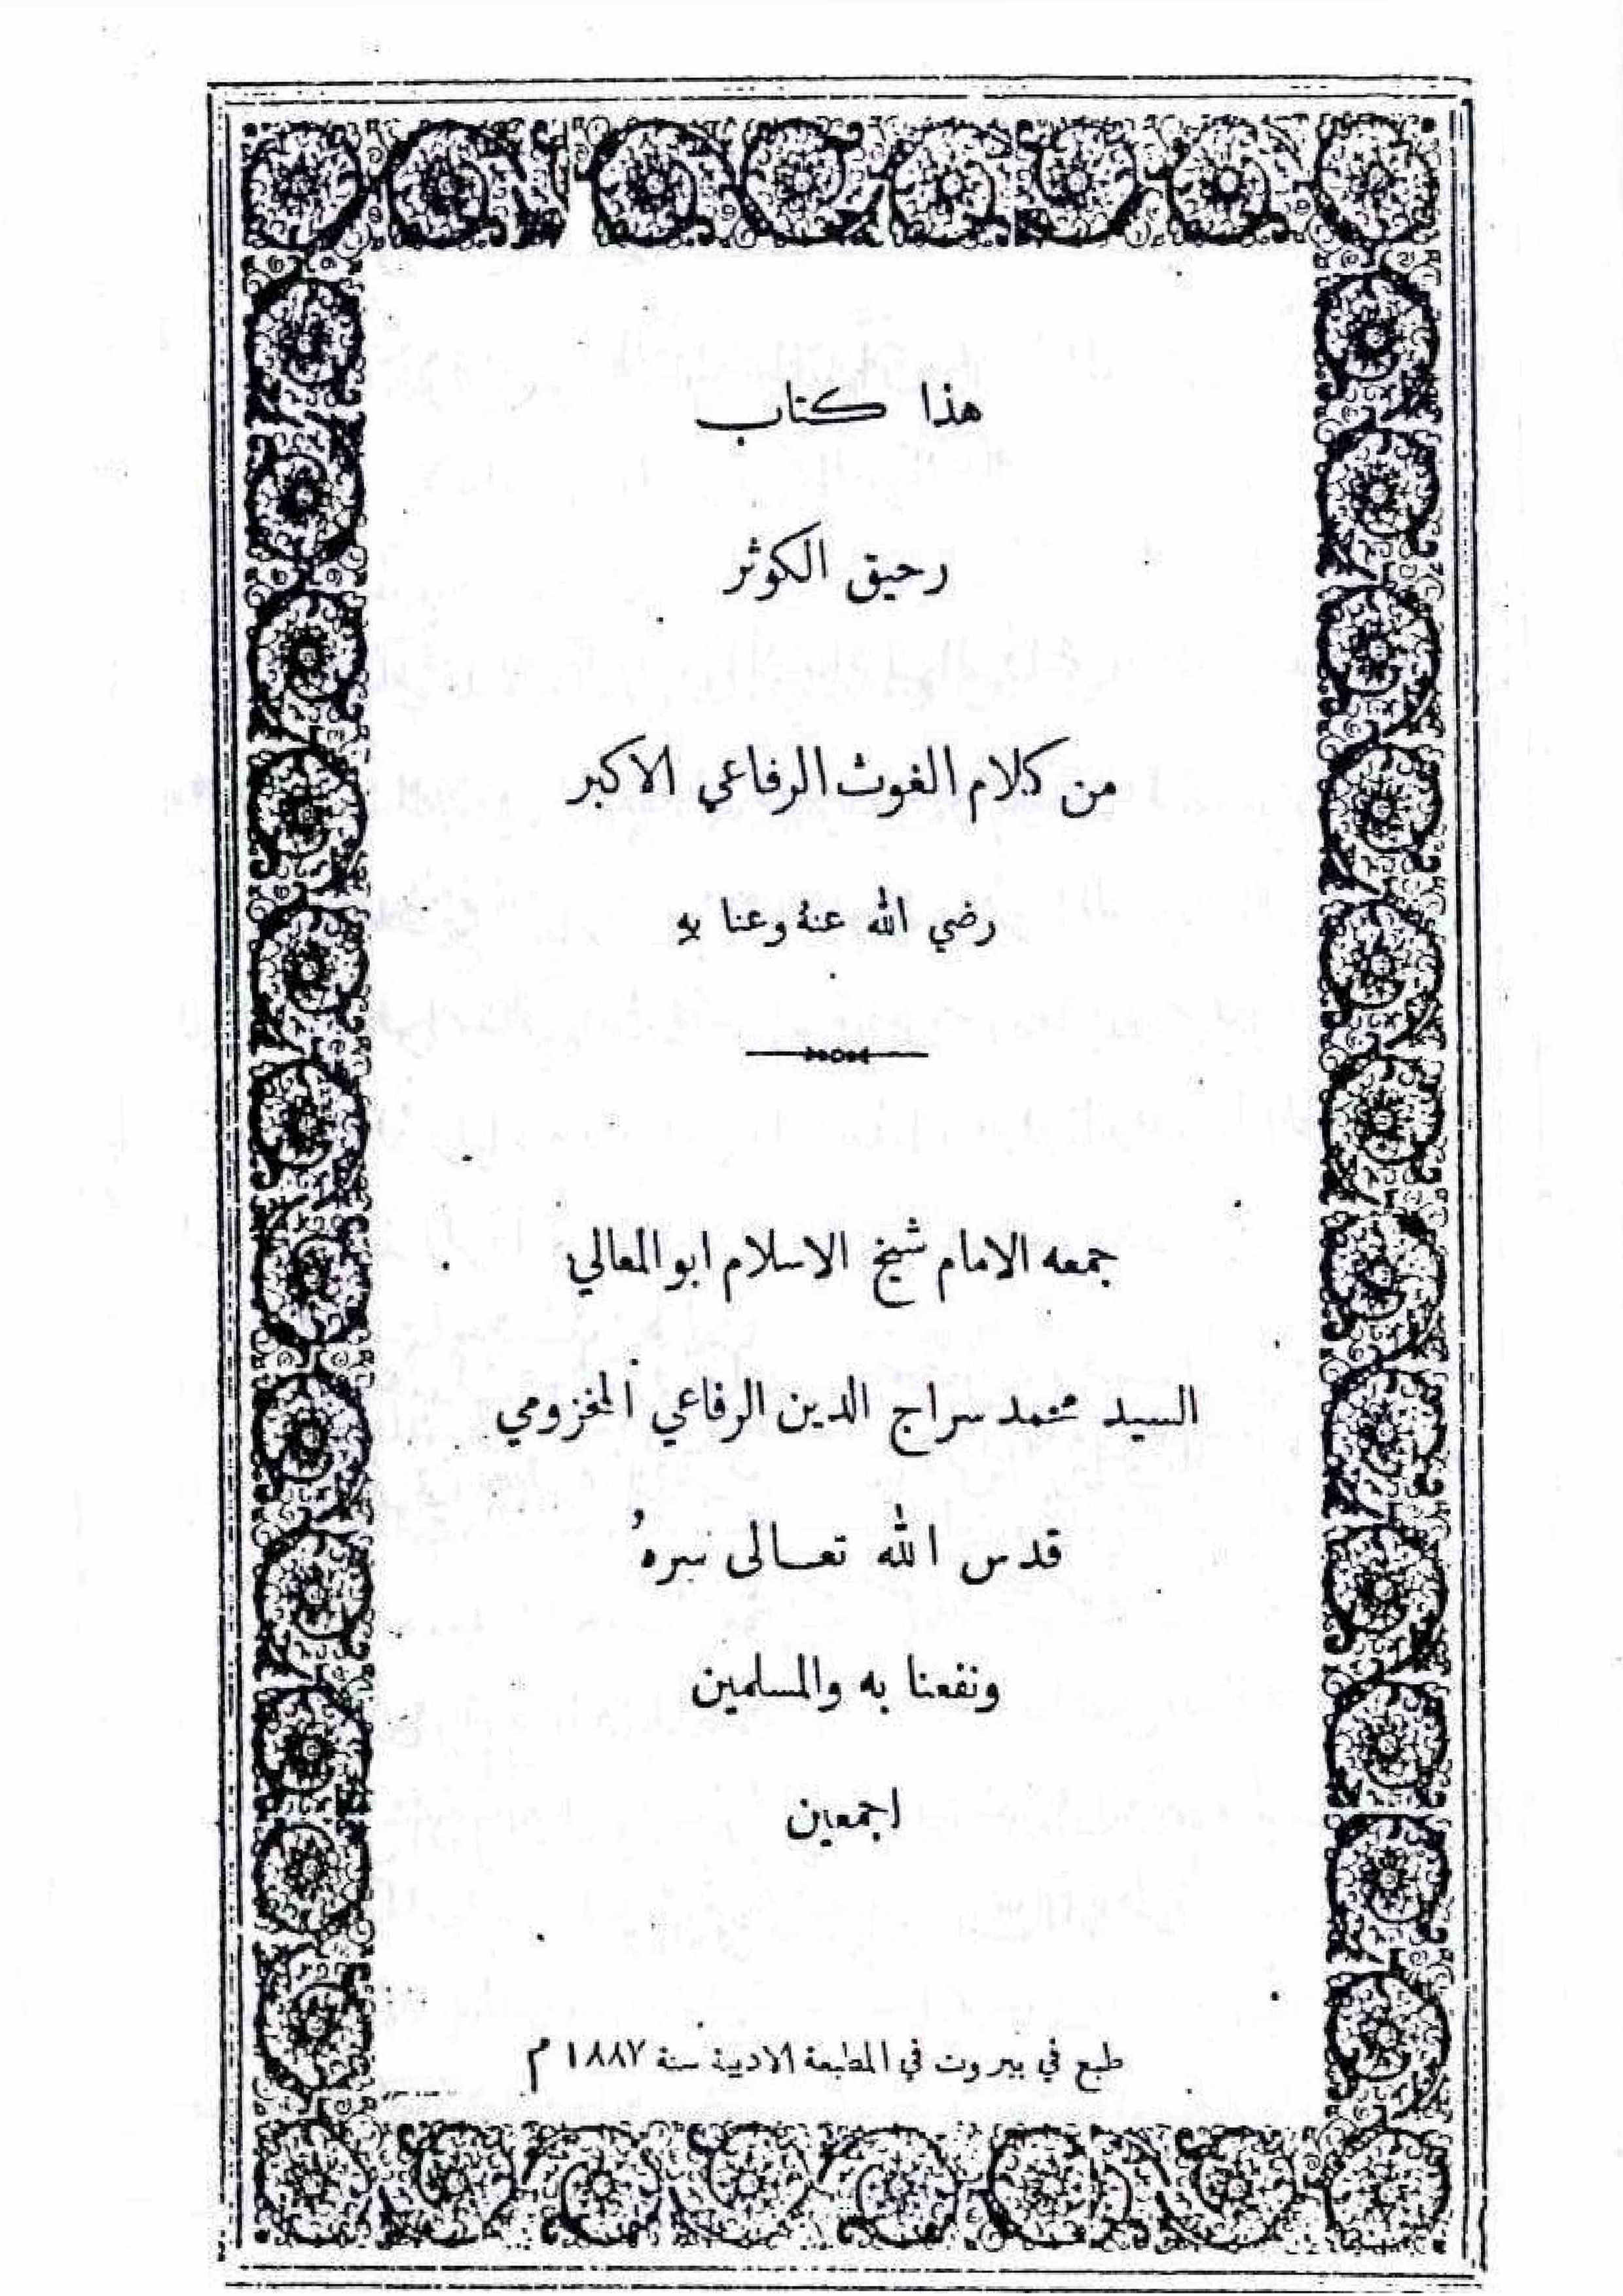 هذا كتاب
رحيق الكوثر
من كلام الغوث الرفاعي الاكبر
رضي الله عنهُ وعنا به
جمعه الامام شيخ الاسلام ابو المعالي
السيد محمد سراج الدين الرفاعي المخزومي
قدس الله تعالى سرهُ
ونفعنا به والمسلمين
اجمعين
طبع في بيروت في المطبعة الادبية سنة ١٨٨٧ م